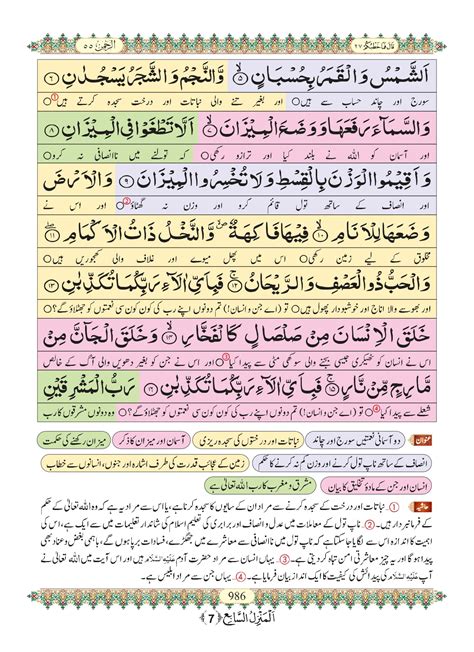 قَالَ فَمَا خَطْبُكُمْ ٢٧
الرَّحْمٰن ٥٥
اَلشَّمْسُ وَالْقَمَرُ بِحُسْبَانٍ ﴿٥﴾ وَّالنَّجْمُ وَالشَّجَرُ يَسْجُدٰنِ ﴿٦﴾
سورج اور چاند حساب سے ہیں اور بغیر تنے والی نباتات اور درخت سجدہ کرتے ہیں ①
وَالسَّمَآءَ رَفَعَهَا وَوَضَعَ الْمِيْزَانَ ﴿٧﴾ اَلَّا تَطْغَوْا فِي الْمِيْزَانِ ﴿٨﴾
اور آسمان کو اللہ نے بلند کیا اور ترازو رکھی کہ تولنے میں ناانصافی نہ کرو
وَاَقِيْمُوا الْوَزْنَ بِالْقِسْطِ وَلَا تُخْسِرُوا الْمِيْزَانَ ﴿٩﴾ وَالْاَرْضَ
اور انصاف کے ساتھ تول قائم کرو اور وزن نہ گھٹاؤ ② اور اس نے
وَضَعَهَا لِلْاَنَامِ ﴿١٠﴾ فِيْهَا فَاكِهَةٌ وَّالنَّخْلُ ذَاتُ الْاَكْمَامِ ﴿١١﴾
مخلوق کے لیے زمین رکھی اس میں پھل میوے اور غلاف والی کھجوریں ہیں
وَالْحَبُّ ذُو الْعَصْفِ وَالرَّيْحَانُ ﴿١٢﴾ فَبِاَيِّ اٰلَآءِ رَبِّكُمَا تُكَذِّبٰنِ ﴿١٣﴾
اور بھوسے والا اناج اور خوشبودار پھول ہیں تو (اے جن و انسان!) تم دونوں اپنے رب کی کون کون سی نعمتوں کو جھٹلاؤ گے؟
خَلَقَ الْاِنْسَانَ مِنْ صَلْصَالٍ كَالْفَخَّارِ ﴿١٤﴾ وَخَلَقَ الْجَآنَّ مِنْ
اس نے انسان کو ٹھیکری جیسی بجنے والی سوکھی مٹی سے پیدا کیا ③ اور اس نے جن کو بغیر دھویں والی آگ کے خالص
مَّارِجٍ مِّنْ نَّارٍ ﴿١٥﴾ فَبِاَيِّ اٰلَآءِ رَبِّكُمَا تُكَذِّبٰنِ ﴿١٦﴾ رَبُّ الْمَشْرِقَيْنِ
شعلے سے پیدا کیا ④ تو (اے جن و انسان!) تم دونوں اپنے رب کی کون کون سی نعمتوں کو جھٹلاؤ گے؟ وہ دونوں مشرقوں کا رب
عنوان دو آسمانی نعمتیں سورج اور چاند نباتات اور درختوں کی سجدہ ریزی آسمان اور میزان کا ذکر میزان رکھنے کی حکمت
انصاف کے ساتھ ناپ تول کرنے اور وزن کم نہ کرنے کا حکم زمین کے عجائب قدرت کی طرف اشارہ اور جنوں، انسانوں سے خطاب
انسان اور جن کے مادۂ تخلیق کا بیان مشرق و مغرب کا رب اللہ تعالیٰ ہے
حاشیہ ① نباتات اور درخت کے سجدہ کرنے سے مراد ان کے سایوں کا سجدہ کرنا ہے، یا سجدہ کرنے سے مراد یہ ہے کہ وہ اللہ تعالیٰ کے حکم
کے فرمانبردار ہیں۔ ② ناپ تول کے معاملات میں عدل و انصاف اور برابری کی تعلیم اسلام کی شاندار تعلیمات میں سے ایک ہے، اس کی
اہمیت کا اندازہ اس سے لگایا جاسکتا ہے کہ ناپ تول میں ناانصافی سے معاشرے میں جھگڑے، فسادات برپا ہوں گے، باہمی بغض و عناد بھی
پیدا ہوگا اور یہ چیز معاشرتی امن تباہ کردیتی ہے۔ ③ یہاں انسان سے مراد حضرت آدم عَلَيْهِ السَّلَام ہیں اور اس آیت میں اللہ تعالیٰ نے
آپ عَلَيْهِ السَّلَام کی پیدائش کی کیفیت کا ایک انداز بیان فرمایا ہے۔ ④ یہاں جن سے مراد ابلیس ہے۔
986
اَلْمَنْزِلُ السَّابِع ﴿7﴾